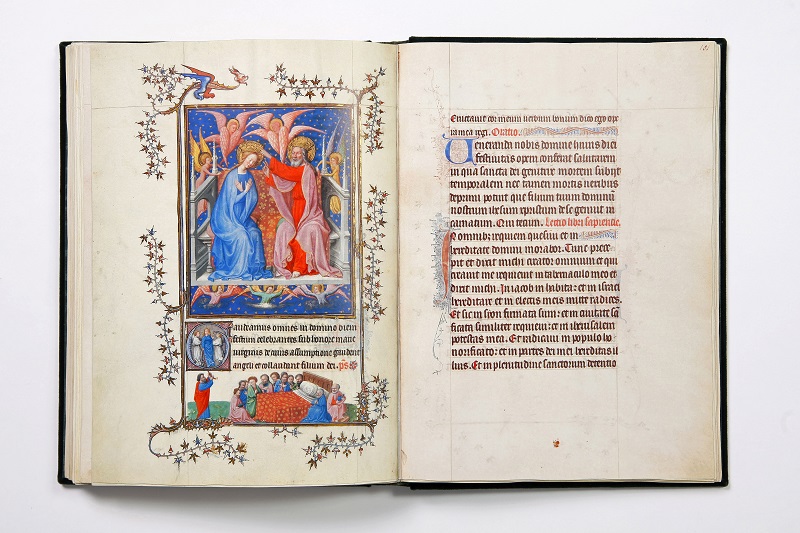 Gaudeamus omnes in domino diem
festum celebrantes sub honore marie
virginis de cuius assumptione gaudent
angeli et collaudant filium dei. ps
Eructavit cor meum verbum bonum dico ego ope
ra mea regi. Oratio.
Veneranda nobis domine huius diei
festivitas opem conferat salutarem
in qua sancta dei genitrix mortem subiit
temporalem nec tamen mortis nexibus
deprimi potuit que filium tuum dominum
nostrum ihesum christum de se genuit in
carnatum. Qui tecum. Lectio libri sapiencie.
In omnibus requiem quesivi et in
hereditate domini morabor. Tunc prece
pit et dixit michi creator omnium et qui
creavit me requievit in tabernaculo meo et
dixit michi. In iacob inhabita: et in israel
hereditare et in electis meis mitte radices.
Et sic in syon firmata sum: et in civitate san
ctificata similiter requievi: et in iherusalem
potestas mea. Et radicavi in populo ho
norificato: et in partes dei mei hereditas il
lius. Et in plenitudine sanctorum detentio